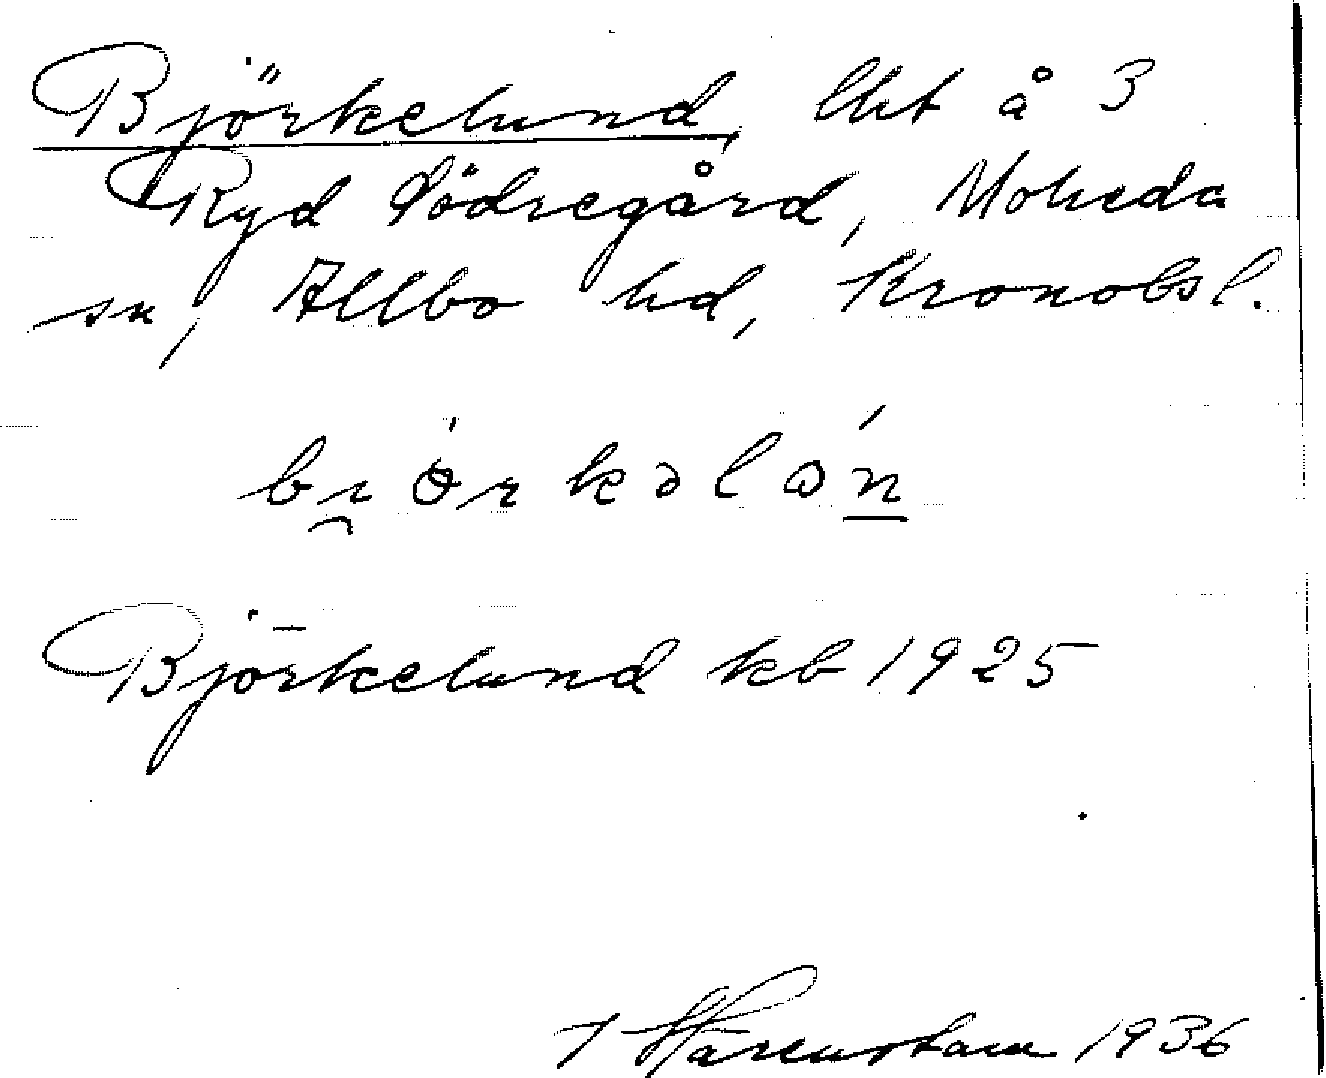 Björkelund, lht å 3
Ryd Södregård, Moheda
sn, Allbo hd, Kronobsl.
bi̯örkəlón
Björkelund kb 1925
1936